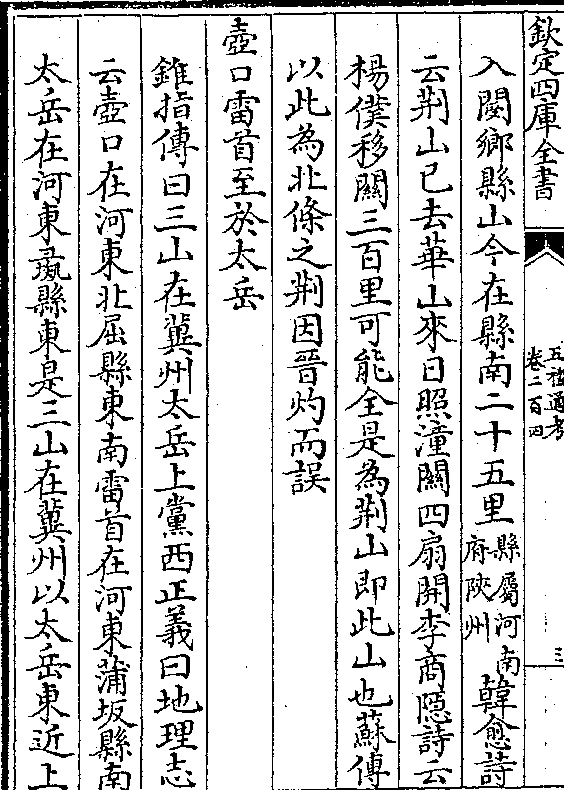 欽定四庫全書
五禮通考
卷二百四
三
入閿鄉縣山今在縣南二十五里縣屬河南府陜州韓愈詩
云荆山已去華山來日照潼關四扇開李商隱詩云
楊僕移關三百里可能全是為荆山即此山也蘇傳
以此為北條之荆因晉灼而誤
壺口雷首至於太岳
錐指傳曰三山在冀州太岳上黨西正義曰地理志
云壺口在河東北屈縣東南雷首在河東蒲坂縣南
太岳在河東彘縣東是三山在冀州以太岳東近上